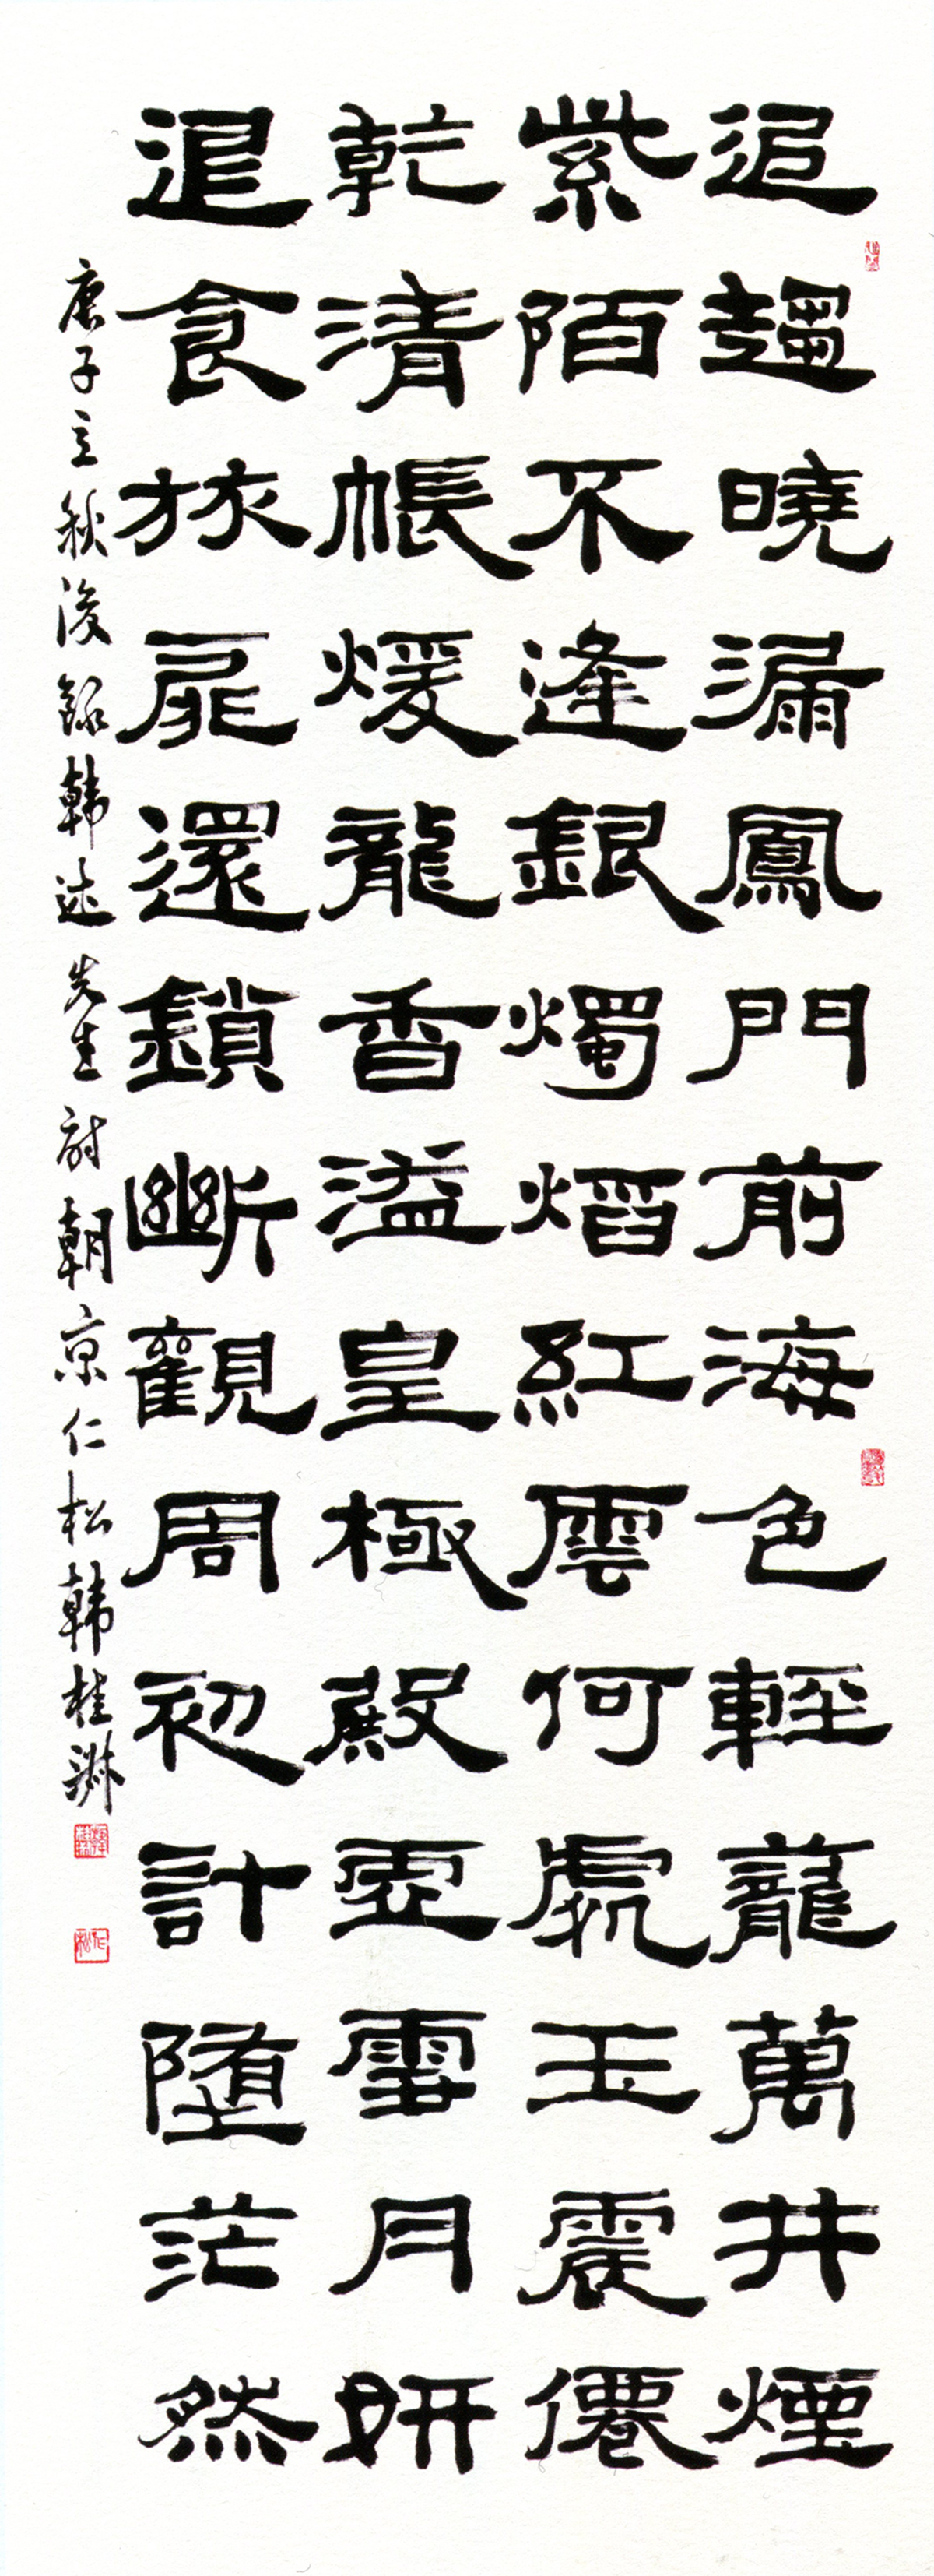 追趨曉漏鳳門前海色輕蘢萬井煙
紫陌不逢銀燭熖紅雲何處玉震僊
乾清帳煖龍香溢皇極殿虛雪月姸
退食旅扉還鎖斷觀周初計墮茫然
庚子立秋後錄韓述先生詩朝京仁松韓桂
仁松